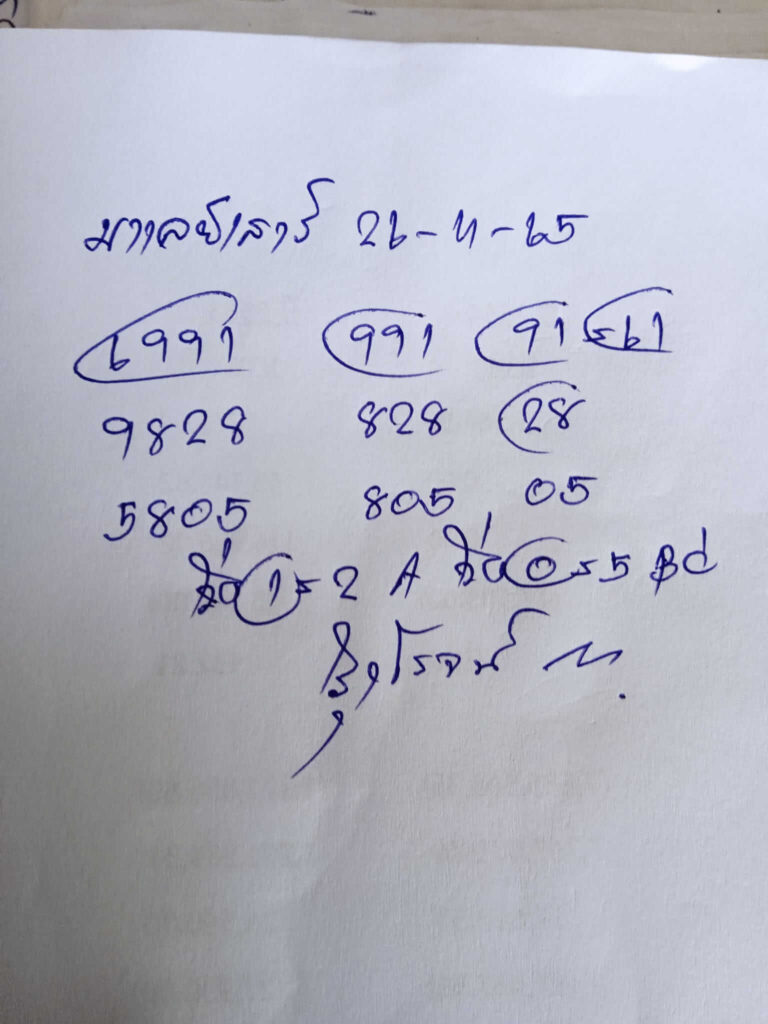 มาเลย์เสาร์ 26-11-65
6991 991 91 61
9828 828 28
5805 805 05
1 2 A 0 5
โรจน์